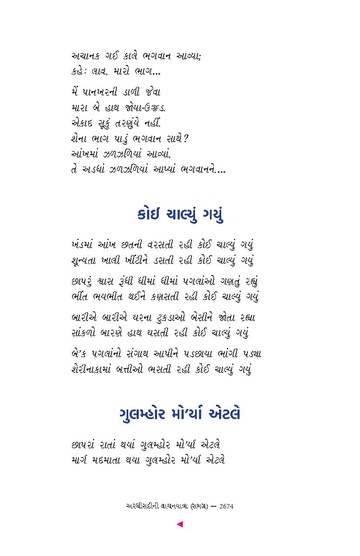 અચાનક ગઈ કાલે ભગવાન આવ્યા;
કહેઃ લાવ, મારો ભાગ...
મેં પાનખરની ડાળી જેવા
મારા બે હાથ જોયા-ઉજ્જડ.
એકાદ સૂકું તરણુંયે નહીં.
શેના ભાગ પાડું ભગવાન સાથે?
આંખમાં ઝળઝળિયાં આવ્યાં,
તે અડધાં ઝળઝળિયાં આપ્યાં ભગવાનને....
કોઈ ચાલ્યું ગયું
ખંડમાં આંખ છતની વરસતી રહી કોઈ ચાલ્યું ગયું
શૂન્યતા ખાલી ખીંટીને ડસતી રહી કોઈ ચાલ્યું ગયું
છાપરું શ્વાસ રૂંધી ધીમાં ધીમાં પગલાંઓ ગણતું રહ્યું
ભીંત ભયભીત થઈને કણસતી રહી કોઈ ચાલ્યું ગયું
બારીએ બારીએ ઘરના ટુકડાઓ બેસીને જોતા રહ્યા
સાંકળો બારણે હાથ ઘસતી રહી કોઈ ચાલ્યું ગયું
બે'ક પગલાંનો સંગાથ આપીને પડછાયા ભાંગી પડ્યા
શેરીનાકામાં બત્તીઓ ભસતી રહી કોઈ ચાલ્યું ગયું
ગુલમ્હોર મો'ર્યા એટલે
છાપરાં રાતાં થયાં ગુલમ્હોર મો'ર્યા એટલે
માર્ગ મદમાતા થયા ગુલમ્હોર મો'ર્યા એટલે
અરધીસદીની વાચનયાત્રા (સમગ્ર) — 2674